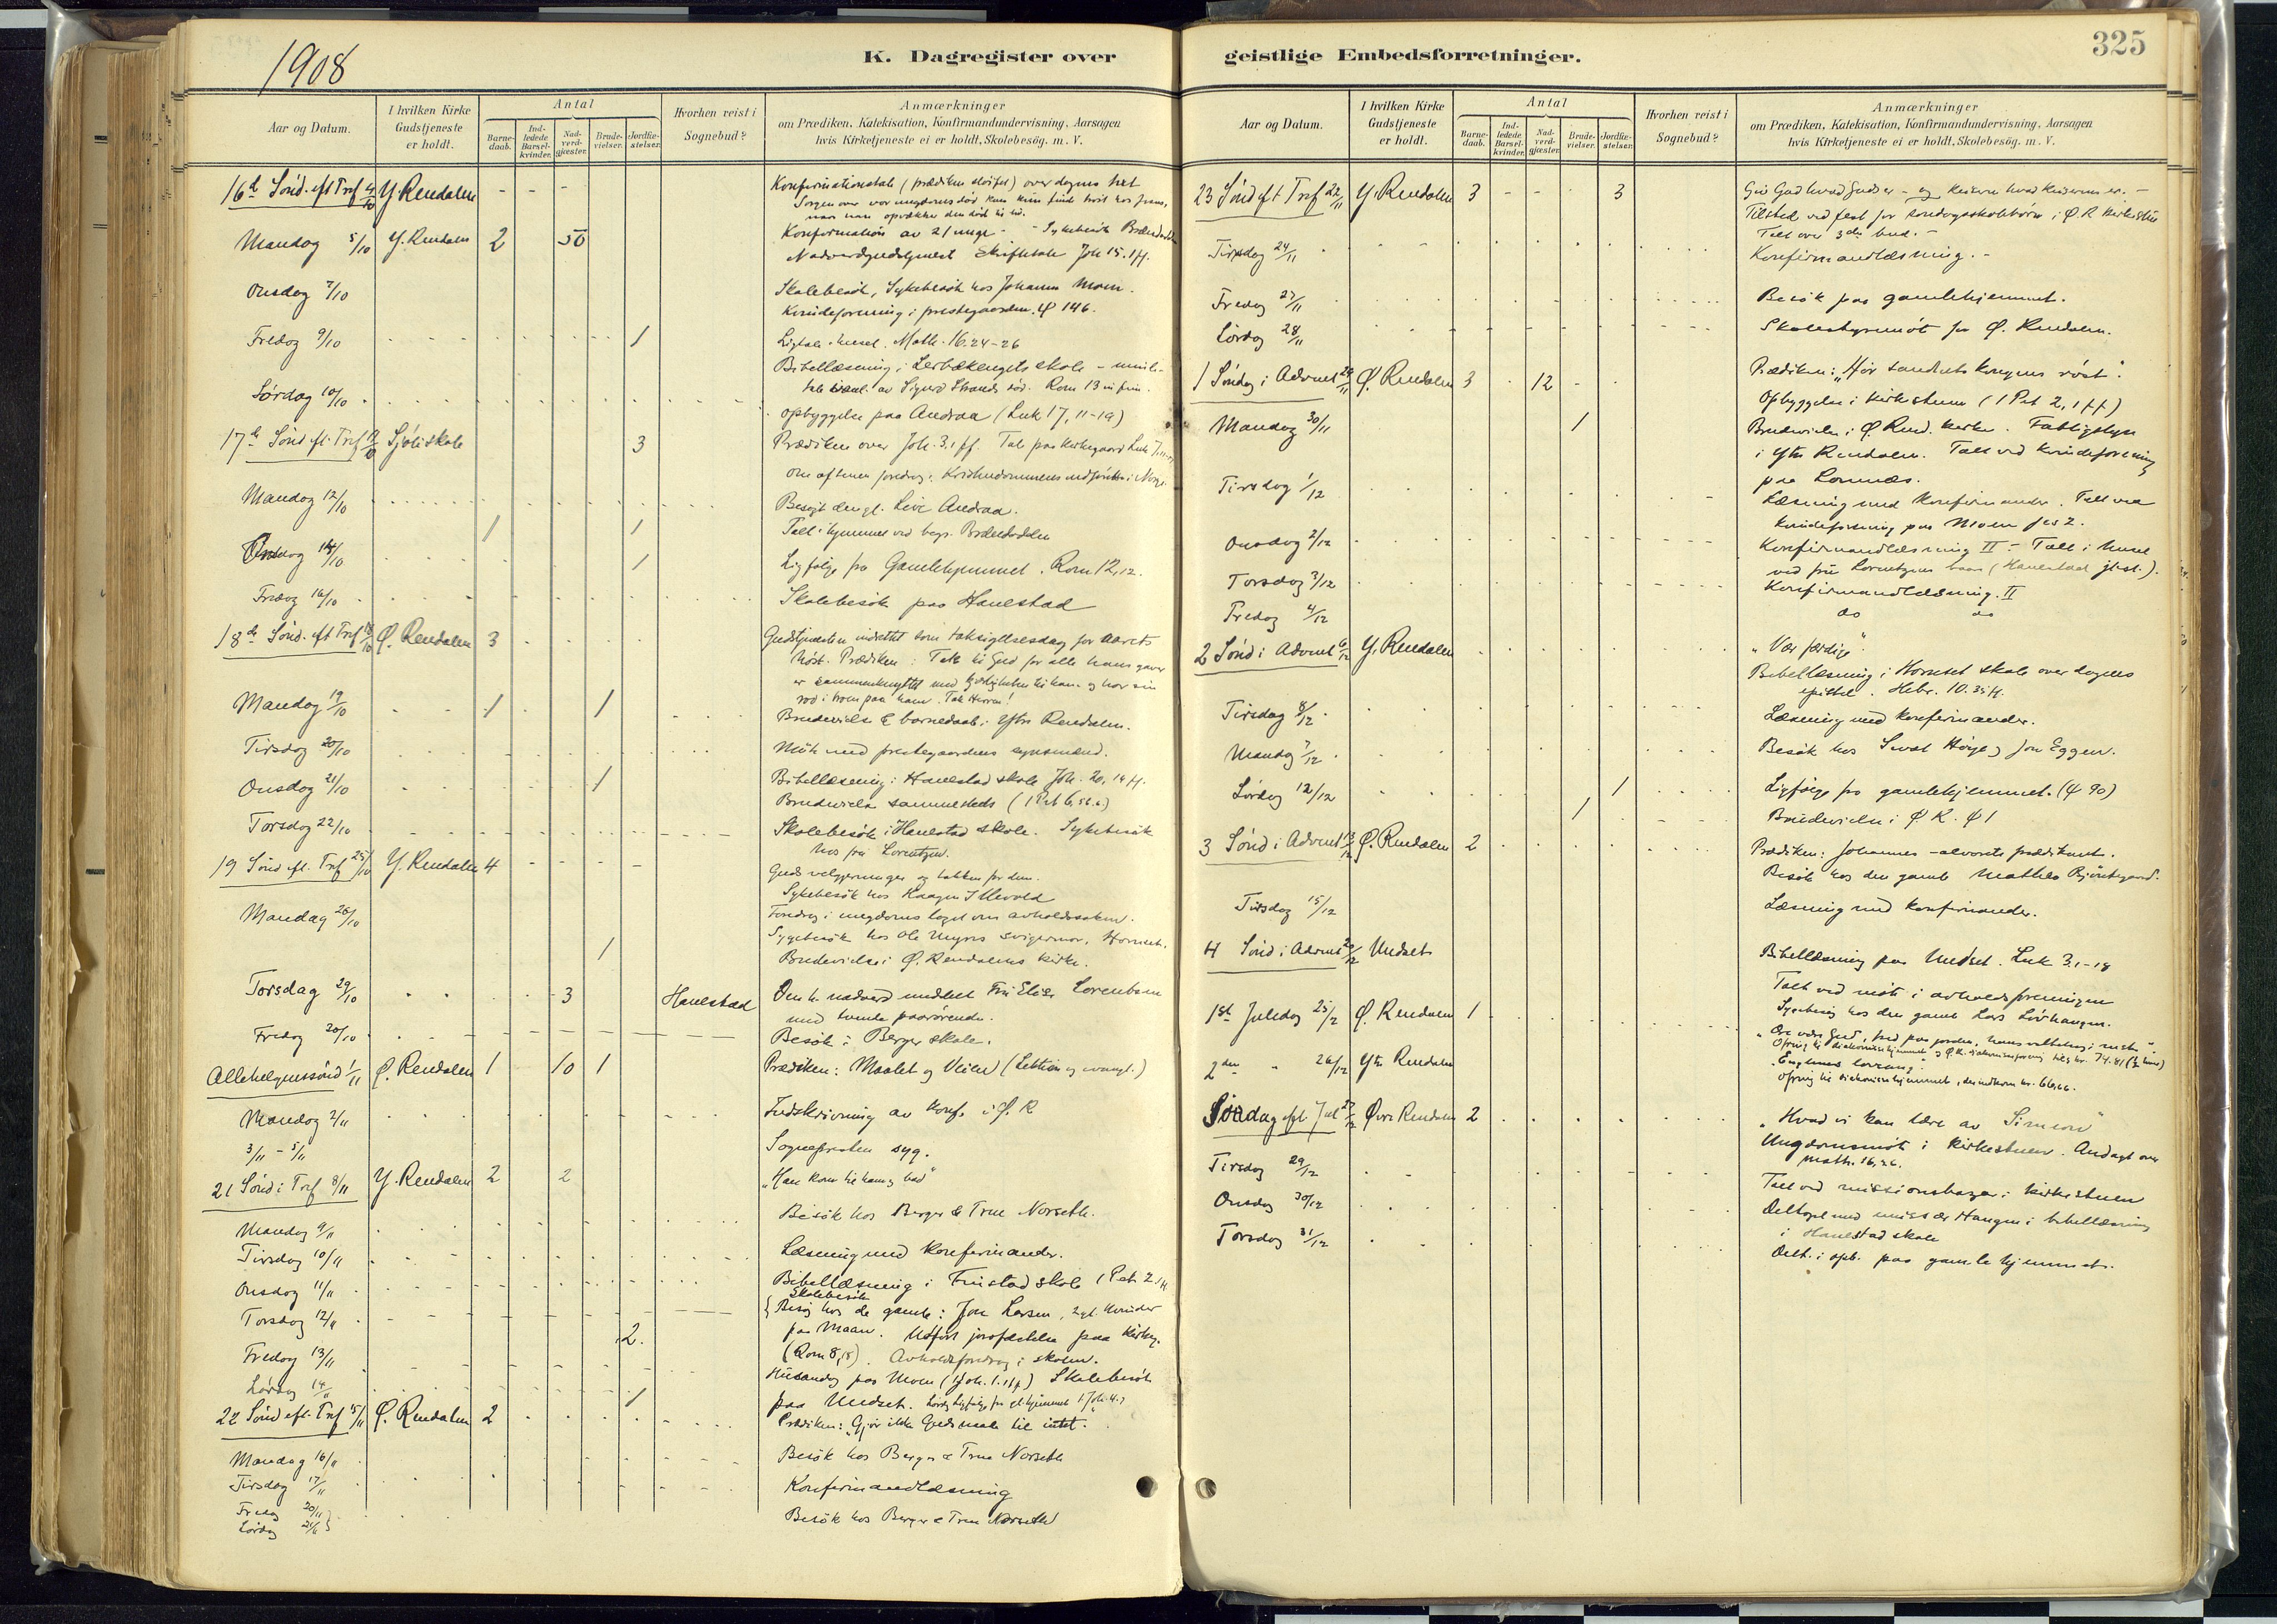 1908
K. Dagregister over
Aar og Datum.
I hvilken Kirke Gudstjeneste er holdt.
Antal
Barne-daab.
Ind-ledede Barsel-kvinder.
Nad-verd-gjæster.
Brude-vielser.
Jordfæ-stelser.
Hvorhen reist i Sognebud?
Anmærkninger
om Prædiken, Katekisation, Konfirmandundervisning, Aarsagen
hvis Kirketjeneste ei er holdt, Skolebesøg. m. V.
16d Sønd. eft Tref 4/10 Y. Rendalen - - - Konfirmationstale (prædiken sløifet) over dagens text
Mandag 5/10 Y. Rendalen 2 50 Konfirmation av 21 unge - Sykebesøk
Nadverdgudstjenest Skriftetale Joh 15. 1ff.
Onsdag 7/10 Skolebesøk, Sykebesøk hos Johannes Moen.
Kvindeforening i prestegaarden. ψ 146.
Fredag 9/10 1 Ligtale i huset. Math. 16. 24-26
Bibellæsning i skole
Lørdag 10/10 opbyggelse paa Andraa (Luk 17, 11-19)
17de Sønd. eft. Tref 11/10 Sjøli skole 3 Prædiken over Joh. 3.1 ff. Tale paa kirkegaard Luk 7
om aftenen foredrag: Kristendommens indførelse i Norge.
Mandag 12/10 Besøgt den gl. Live Andraa.
1 1 Talt i hjemmet ved begr.
Onsdag 14/10 1 Ligfølge fra Gamlehjemmet. Rom 12, 12.
Fredag 16/10 Skolebesøk paa Hanestad
18de Sønd. eft Tref 18/10 Ø. Rendalen 3 Gudstjenesten indrettet som taksigelsesdag for aarets
høst. Prædiken: Takk til Gud for alle hans gaver
er sammenknyttet med kjærligheten til ham og har sin
rod i troen paa ham. Tak Herren!
Mandag 19/10 1 1 Brudevielse & barnedaab i Ytre Rendalen.
Tirsdag 20/10 Møte med prestegaardens synsmænd.
Onsdag 21/10 1 Bibellæsning i Hanestad skole Joh. 20, 19 ff.
Brudevielse sammesteds
Torsdag 22/10 Skolebesøk i Hanestad skole. Sykebesøk
hos fru Lorentzen.
19 Sønd eft. Tref 25/10 Y. Rendalen 4 Guds velgjerninger og takken for dem.
Sykebesøk hos Haagen Illevold
Mandag 26/10 Foredrag i ungdomslaget om avholdssaken.
Sygebesøk hos Ole Myres svigermor, Hornset.
1 Brudevielse i Ø. Rendalens kirke.
Torsdag 29/10 3 Hanestad Den h. nadverd meddelt Fru Elise Lorentzen
med tvende paarørende.
Fredag 30/10 Besøk i Berger skole.
Allehelgenssønd 1/11 Ø. Rendalen 1 10 1 Prædiken: Maalet og Veien (Lektien og evangl.)
Mandag 2/11 Indskrivning av konf. i Ø. R
3/11 - 5/11 Sognepresten syg.
21 Sønd i Tref 8/11 Y. Rendalen 2 2 "Han kom til ham og bad"
Mandag 9/11 Besøk hos Berger & True Norseth.
Tirsdag 10/11 Læsning med konfirmander.
Onsdag 11/11 Bibellæsning i Finstad skole 1 Pet 2. 1ff
Skolebesøk
Torsdag 12/11 Besøg hos de gamle: Jon Larsen, 2 gl. kvinder
2. paa Moan. Utført jordfæstelse paa kirkeg.
Fredag 13/11 (Rom 8, 18). Avholdsforedrag i skolen.
Lørdag 14/11 Husandag paa Moen (1 Joh. 1. 1ff) Skolebesøk
1 paa Undset. Lørdag Ligfølge fra gl.hjemmet 1 Joh. 4.
22 Sønd eft. Tref 15/11 Ø. Rendalen 2 Prædiken: "Gjør ikke Guds naade til intet."
Mandag 16/11 Besøk hos Berger & True Norseth
Tirsdag 17/11 Konfirmandlæsning
Fredag 20/11
Lørdag 21/11 Besøk hos Berger & True Norseth
geistlige Embedsforretninger.
325
Aar og Datum.
I hvilken Kirke Gudstjeneste er holdt.
Antal
Barne-daab.
Ind-ledede Barsel-kvinder.
Nad-verd-gjæster.
Brude-vielser.
Jordfæ-stelser.
Hvorhen reist i Sognebud?
Anmærkninger
om Prædiken, Katekisation, Konfirmandundervisning, Aarsagen
hvis Kirketjeneste ei er holdt, Skolebesøg. m. V.
23 Sønd eft Tref 22/11 Y. Rendalen 3 3 Giv Gud hvad Guds er - og keiseren hvad keiserens er. -
Tilsted ved fest for søndagsskolebørn i Ø. R kirkestue
Talt over 3die bud. -
Tirsdag 24/11 Konfirmandlæsning. -
Fredag 27/11 Besøk paa gamlehjemmet.
Lørdag 28/11 Skolestyremøt for Ø. Rendalen.
1 Søndag i Advent 29/11 Ø. Rendalen 3 12 Prædiken: "Hør sandhets kongens røst".
Opbyggelse i kirkestuen (1 Pet 2, 1 ff)
Mandag 30/11 1 Brudevielse i Ø. Rend. kirke. Fattigstyre
i Ytre Rendalen. Talt ved kvindeforening
paa Lomnæs.
Tirsdag 1/12 Læsning med konfirmander. Talt ved
kvindeforening paa Moen Jes 2.
Onsdag 2/12 Konfirmandlæsning II - Talt i huset
ved fru Lorentzens baare (Hanestad jb.st.).
Torsdag 3/12 Konfirmandlæsning. II
Fredag 4/12 do do
2 Sønd i Advent 6/12 Y. Rendalen "Vær færdige".
Bibellæsning i Hornset skole over dagens
epistel. Hebr. 10. 35 ff.
Tirsdag 8/12 Læsning med konfirmander.
Mandag 7/12 Besøk hos Sivat Høye og Jon Eggen.
Lørdag 12/12 1 Ligfølge fra gamlehjemmet. (ψ 90)
1 Brudevielse i Ø R. ψ 1
3 Sønd i Advent 13/12 Ø. Rendalen 2 Prædiken: Johannes - alvorets prædikant.
Besøk hos den gamle Mathea
Tirsdag 15/12 Læsning med konfirmander.
4 Sønd i Advent 20/12 Undset Bibellæsning paa Undset. Luk 3. 1-18
Talt ved møte i avholdsforeningen
Sygebesøg hos den gamle Lars Løvhaugen.
1st Juledag 25/12 Ø. Rendalen 1 "Ære være Gud, fred paa jorden,
2den " 26/12 Ytre Rendalen "Englenes lovsang".
Ofring til diakonissehjemmet, der indkom kr. 66,66.
Søndag eft. Jul 27/12 Øvre Rendalen 2 "Hvad vi kan lære av Simeon"
Ungdomsmøt i kirkestuen. Andagt over
Math. 16, 26.
Tirsdag 29/12 Talt ved missionsbazar i kirkestuen
Onsdag 30/12 Deltaget med Haugen i bibellæsning
i Hanestad skole
Torsdag 31/12 Delt. i opb. paa gamle hjemmet.